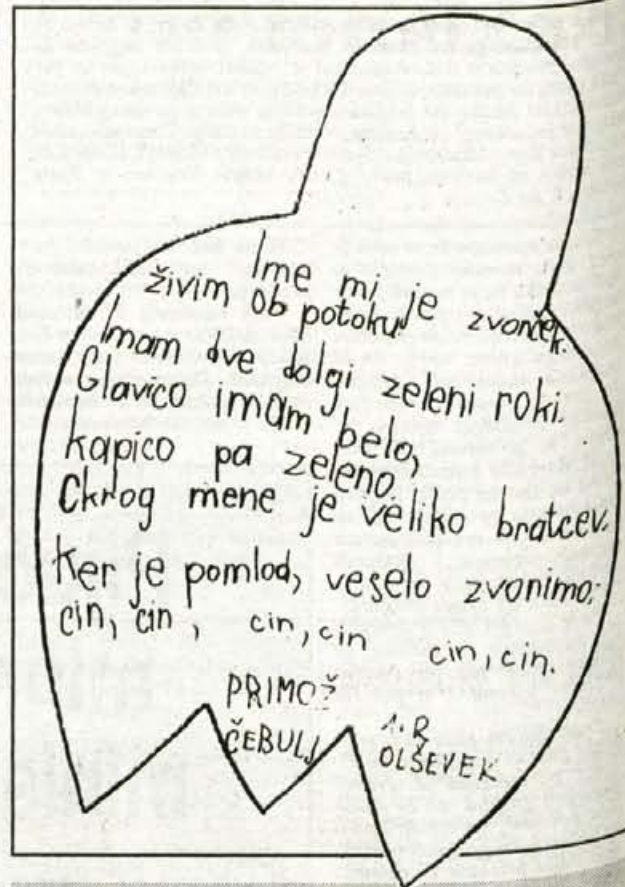 Ime mi je zvonček.
živim ob potoku.
Imam dve dolgi zeleni roki.
Glavico imam belo,
kapico pa zeleno.
Okrog mene je veliko bratcev.
Ker je pomlad, veselo zvonimo:
cin, cin, cin, cin cin, cin.
PRIMOŽ
ČEBULJ
1. R
OLŠEVEK